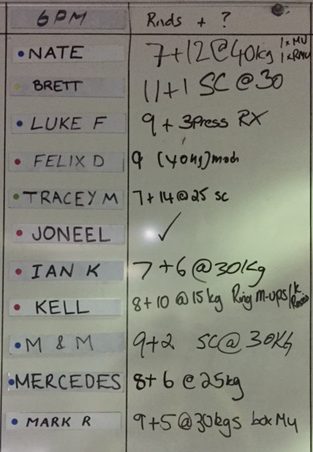 6PM Rnds + ?
NATE 7+12@40kg 1xMU
BRETT 11+1 SC @30
LUKE F 9 + 3Press RX
FELIX D 9 (40kg) mod
TRACEY M 7+14@25 sc
JONEEL ✓
IAN K 7+6@30kg
KELL 8+10 @15kg Ring M-ups/
M & M 9+2 SC@30KG
MERCEDES 8+6@25kg
MARK R 9+5@30kgs box MU